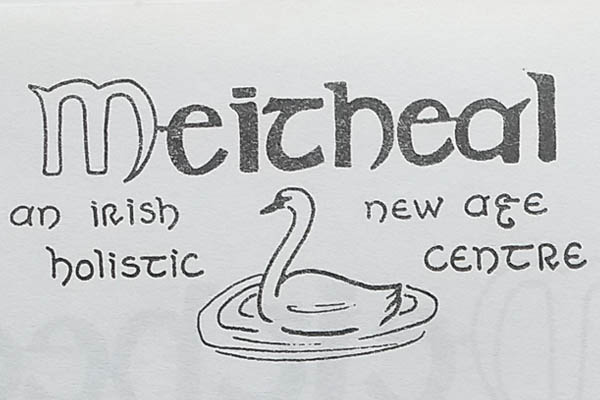 Meitheal
an irish new age
holistic centre